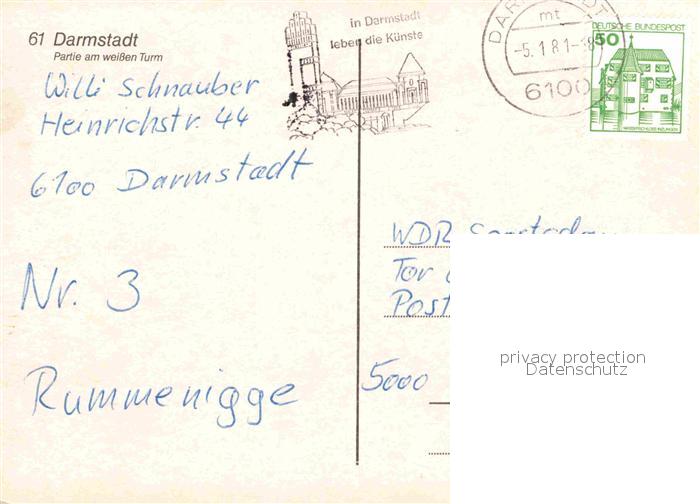 61 Darmstadt
Partie am weißen Turm
Willi Schnauber
Heinrichstr. 44
6100 Darmstadt
Nr. 3
Rummenigge
in Darmstadt
leben die Künste
DARMSTADT
mt
-5.1.81-18
6100
DEUTSCHE BUNDESPOST
50
WASSERSCHLOSS INZLINGEN
WDR
Tor
Post
5000
privacy protection
Datenschutz